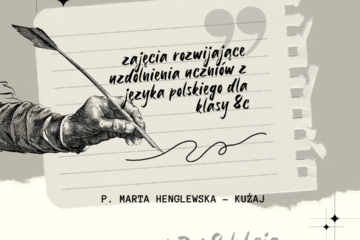 zajęcia rozwijające
uzdolnienia uczniów z
języka polskiego dla
klasy 8c
P. MARTA HENGLEWSKA – KUŻAJ